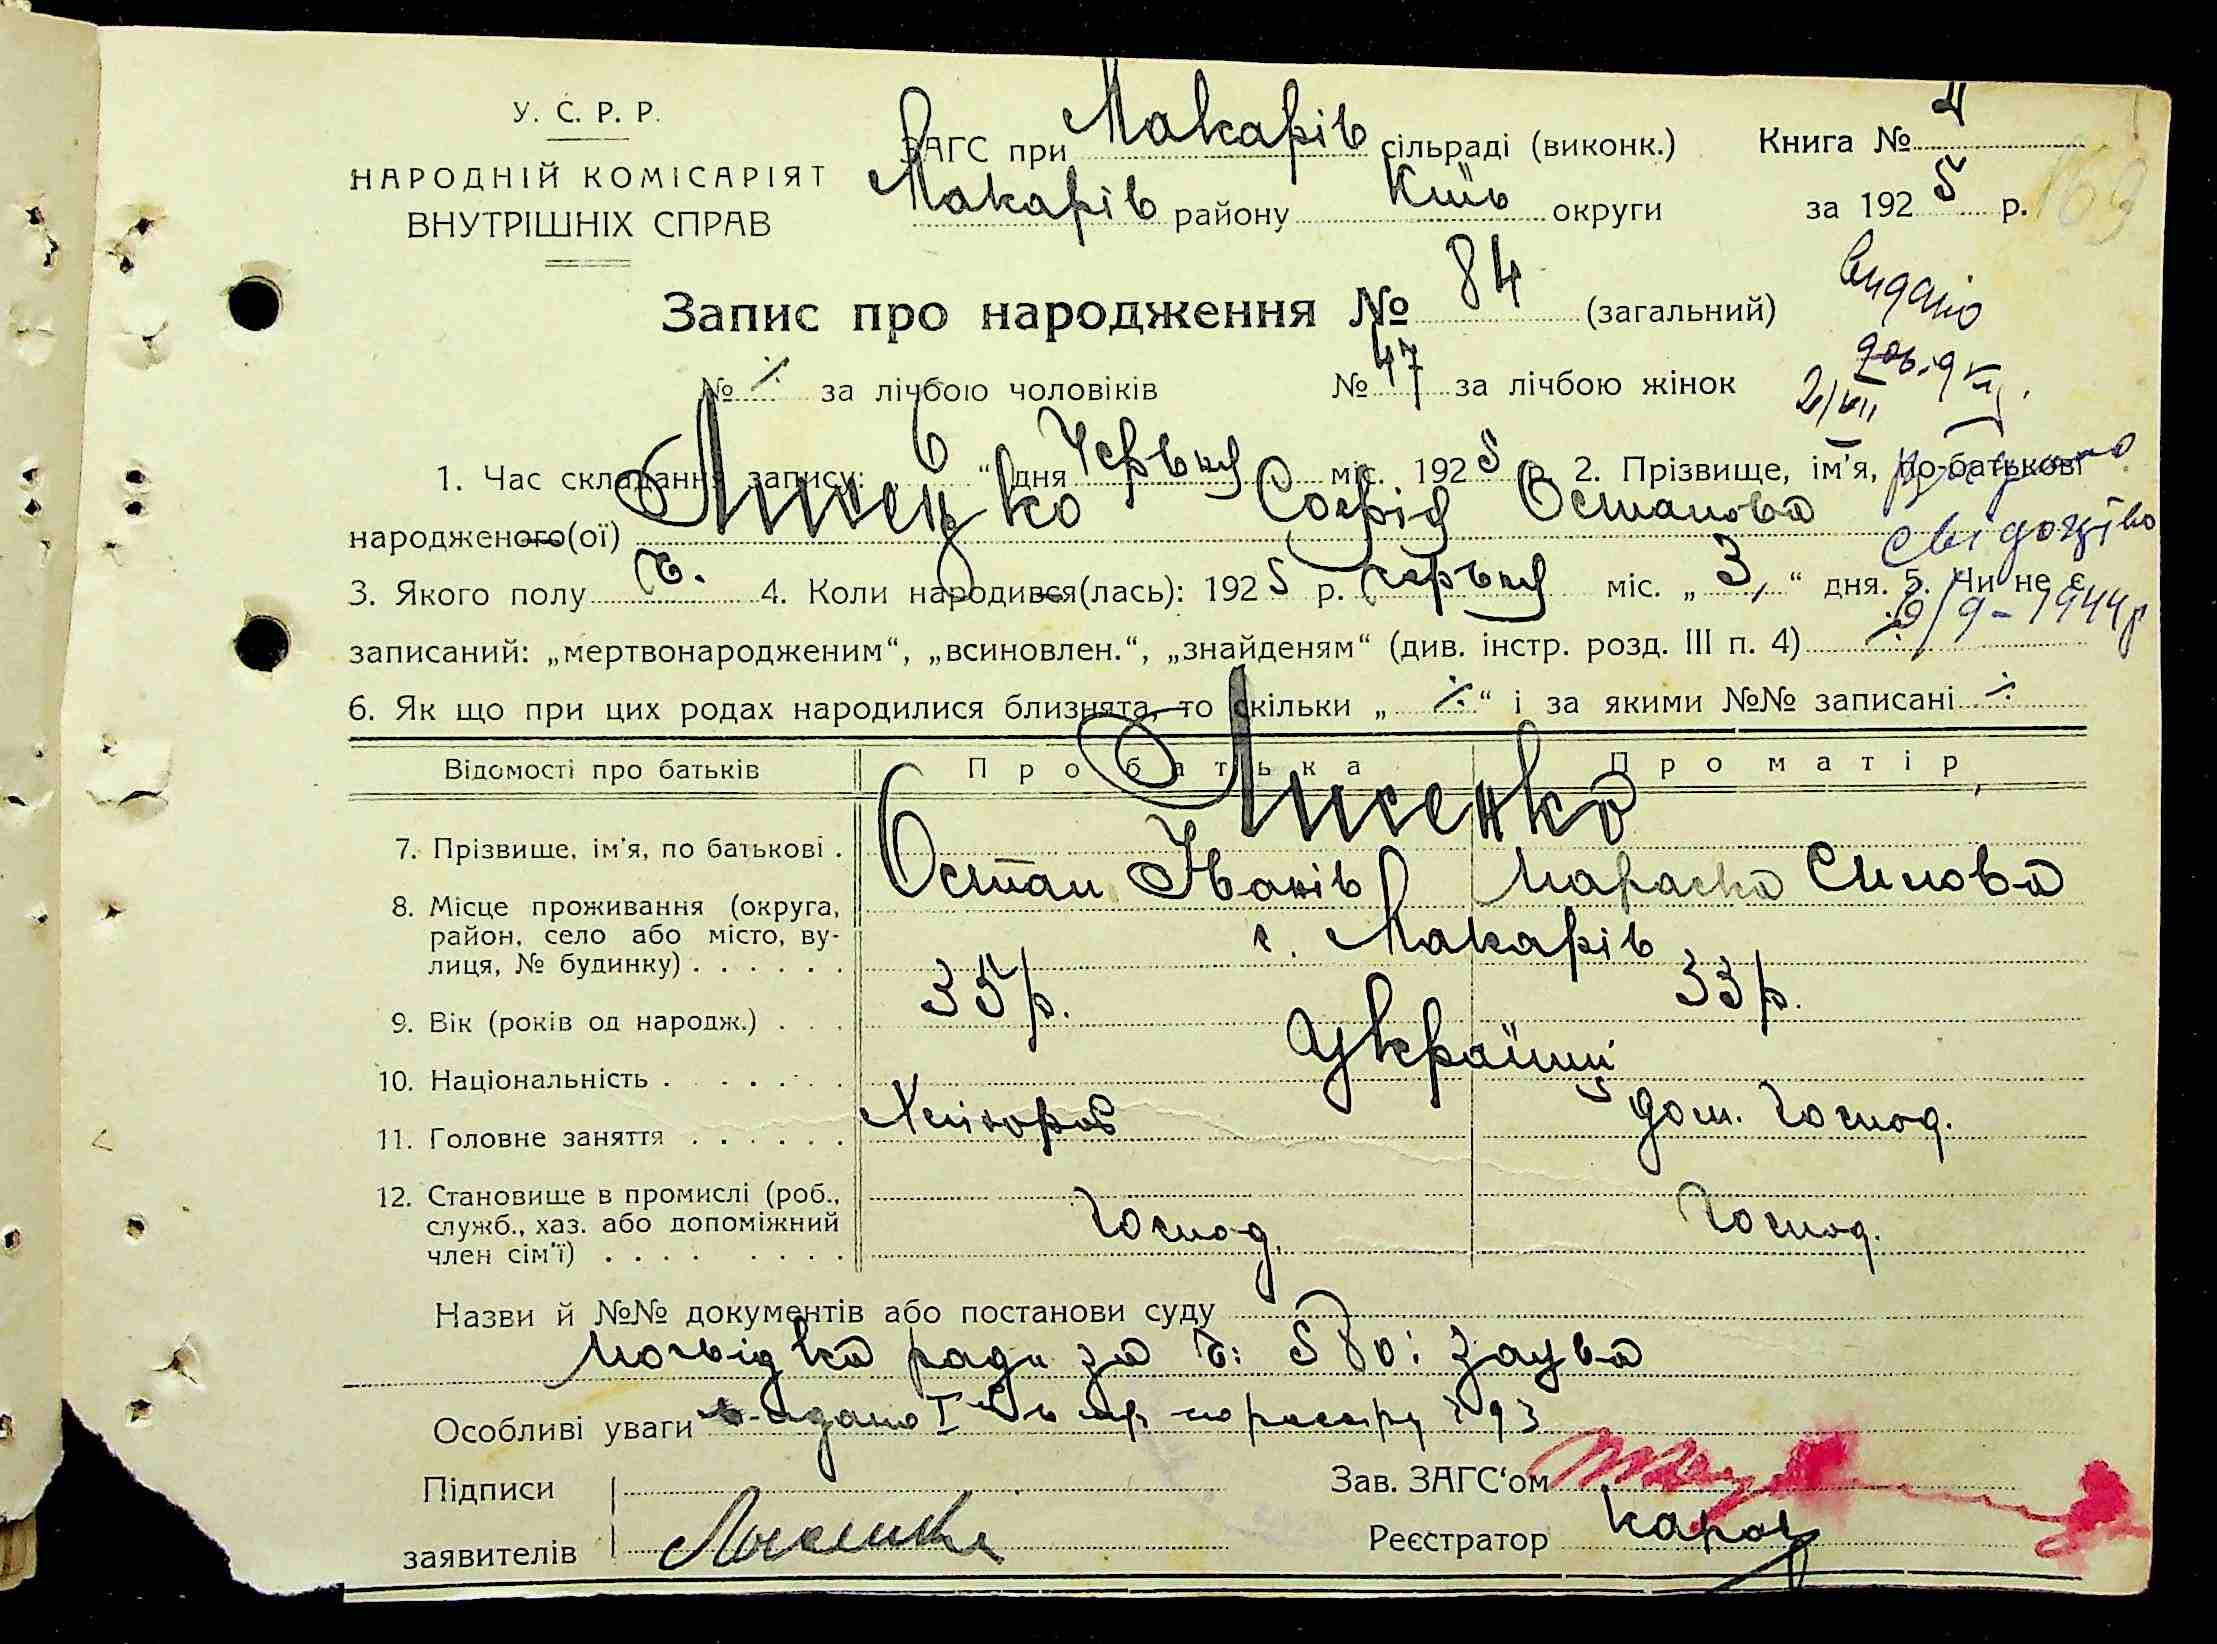 У. С. Р. Р.
НАРОДНІЙ КОМІСАРІЯТ
ВНУТРІШНІХ СПРАВ
ЗАГС при Макарів сільраді (виконк.)
Макарів району Київ округи
Книга №
за 1925 р.
169
Запис про народження № 84 (загальний)
№ ٪ за лічбою чоловіків № 47 за лічбою жінок
видано
довідку
2/VII
1. Час складання запису: 6 " дня Червня міс. 1925 р. 2. Прізвище, ім'я, по-батькові
народженого(ої) Лисенко Софія Остапова
свідоцтво
9/9-1944р
3. Якого полу ж. 4. Коли народився(лась): 1925 р. червня міс. „ 3 “ дня. 5. Чи не є
записаний: „мертвонародженим“, „всиновлен.“, „знайденям“ (див. інстр. розд. III п. 4)
6. Як що при цих родах народилися близнята, то скільки „ ٪ “ і за якими №№ записані ٪
Відомості про батьків Про батька Про матір
7. Прізвище, ім'я, по батькові . Лисенко
Остап Іванів
8. Місце проживання (округа, район, село або місто, вулиця, № будинку) . . . . . . с. Макарів
9. Вік (років од народж.) . . . 35 р. 33 р.
10. Національність . . . . . . Україн
11. Головне заняття . . . . . . Хлібороб дом. господ.
12. Становище в промислі (роб., служб., хаз. або допоміжний член сім'ї) . . . . . . . . Господ. Господ.
Назви й №№ документів або постанови суду
ради за ч: 580: заява
Особливі уваги
Підписи
заявителів Лисенко
Зав. ЗАГС'ом
Реєстратор